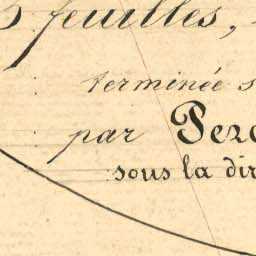 feuilles,
terminée s
par Perc
sous la dir